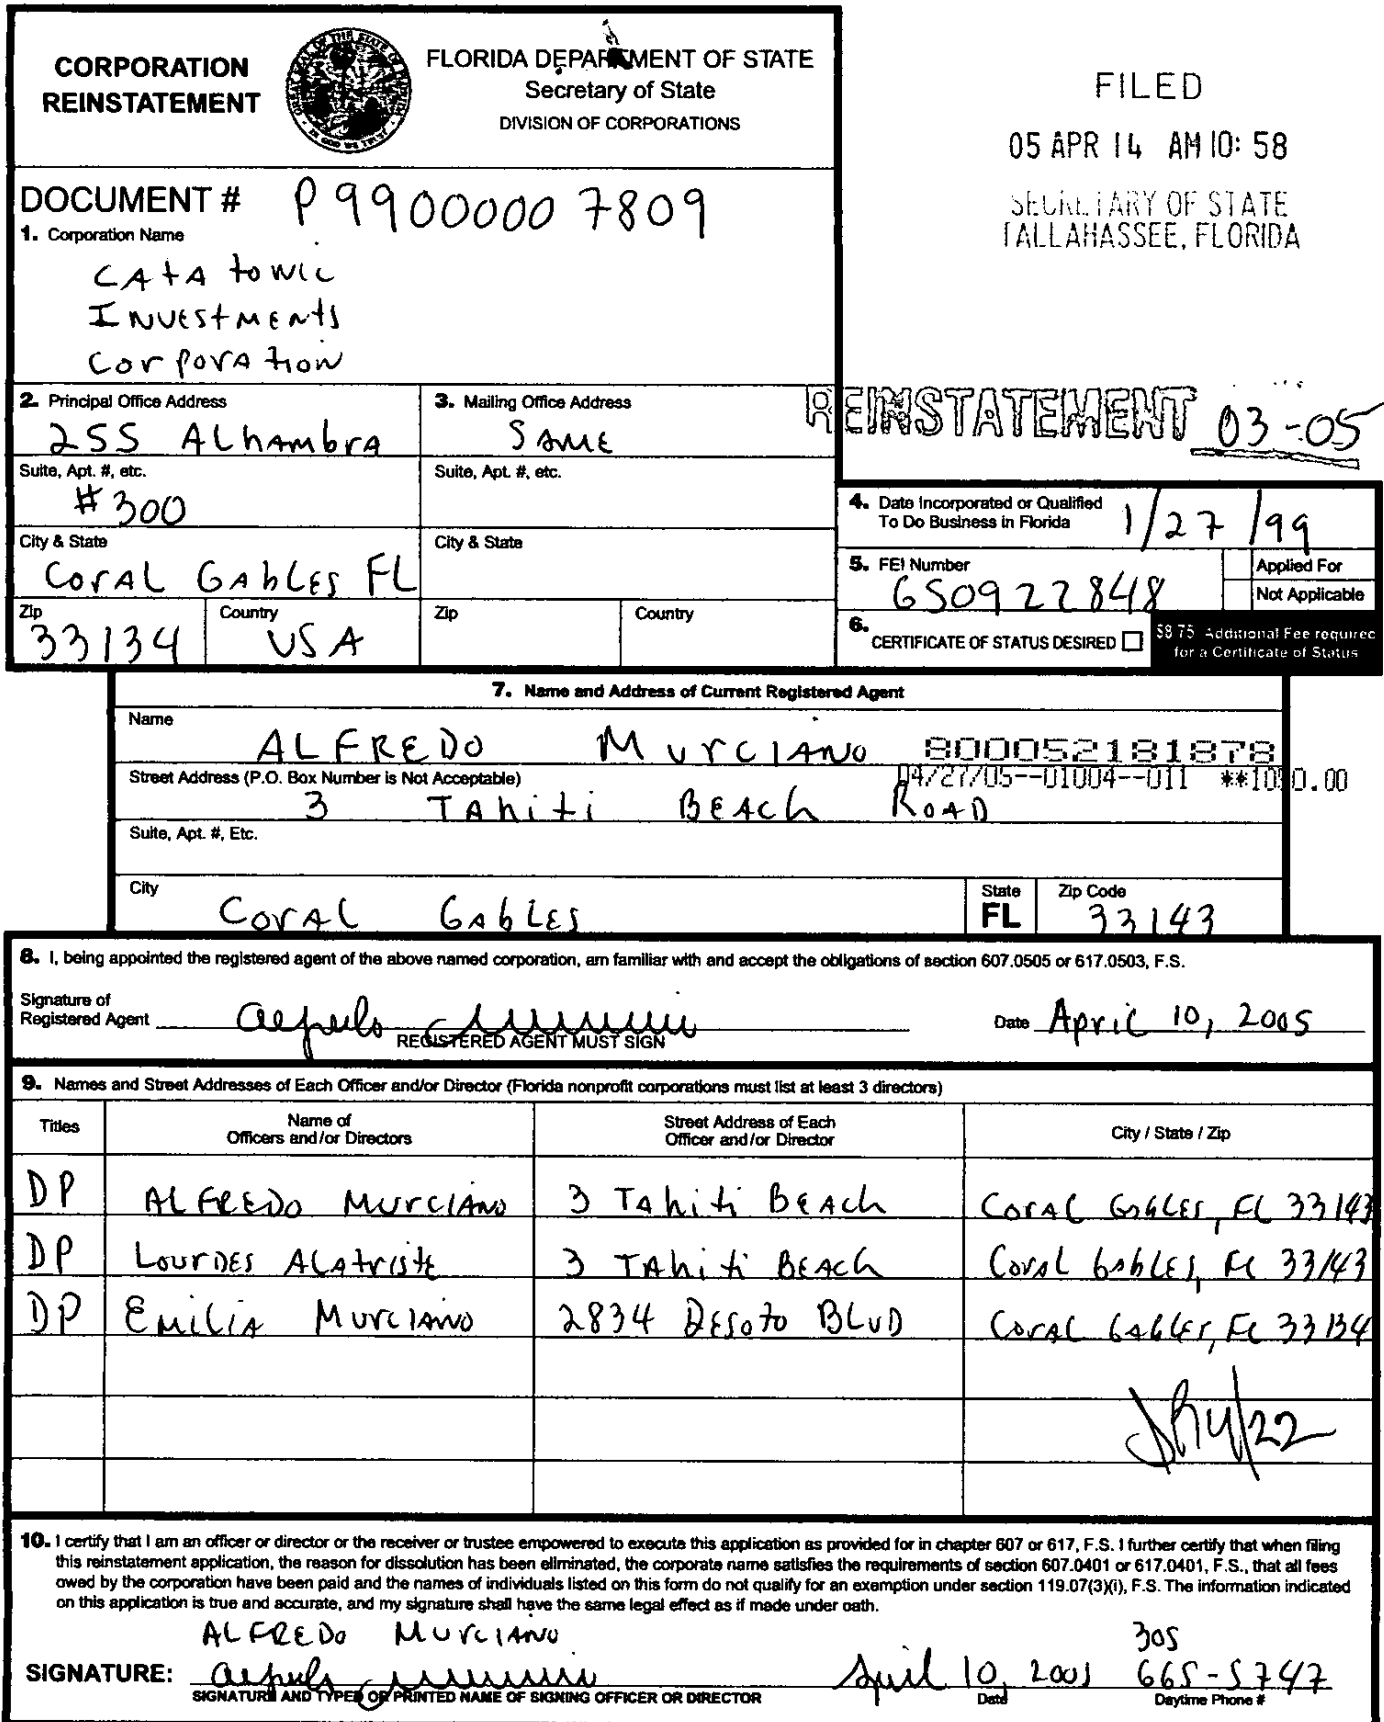 CORPORATION
REINSTATEMENT
FLORIDA DEPARTMENT OF STATE
Secretary of State
DIVISION OF CORPORATIONS
FILED
05 APR 14 AM 10:58
SECRETARY OF STATE
TALLAHASSEE, FLORIDA
DOCUMENT # P99000007809
1. Corporation Name
CATATONIC
INVESTMENTS
CORPORATION
REINSTATEMENT 03-05
2. Principal Office Address
255 ALhambra
3. Mailing Office Address
SAME
Suite, Apt. #, etc.
#300
Suite, Apt. #, etc.
City & State
CORAL GAbLES FL
City & State
Zip
33134
Country
USA
Zip
Country
4. Date Incorporated or Qualified
To Do Business in Florida
1/27/99
5. FEI Number
650922848
Applied For
Not Applicable
6. CERTIFICATE OF STATUS DESIRED
$8.75 Additional Fee required
for a Certificate of Status
7. Name and Address of Current Registered Agent
Name
ALFREDO MURCIANO
800052181878
04/27/05--01004--011 **1050.00
Street Address (P.O. Box Number is Not Acceptable)
3 TAhiti BEACh ROAD
Suite, Apt. #, Etc.
City
CORAL GAbLES
State
FL
Zip Code
33143
8. I, being appointed the registered agent of the above named corporation, am familiar with and accept the obligations of section 607.0505 or 617.0503, F.S.
Signature of
Registered Agent
REGISTERED AGENT MUST SIGN
Date April 10, 2005
9. Names and Street Addresses of Each Officer and/or Director (Florida nonprofit corporations must list at least 3 directors)
Titles
Name of
Officers and/or Directors
Street Address of Each
Officer and/or Director
City / State / Zip
DP ALFREDO MURCIANO 3 TAhiti BEACh CORAL GAbLES, FL 33143
DP LOURDES ALATRISTE 3 TAhiti BEACh CORAL GAbLES, FL 33143
DP EMILIA MURCIANO 2834 DESoto BLVD CORAL GAbLES, FL 33134
4/22
10. I certify that I am an officer or director or the receiver or trustee empowered to execute this application as provided for in chapter 607 or 617, F.S. I further certify that when filing
this reinstatement application, the reason for dissolution has been eliminated, the corporate name satisfies the requirements of section 607.0401 or 617.0401, F.S., that all fees
owed by the corporation have been paid and the names of individuals listed on this form do not qualify for an exemption under section 119.07(3)(i), F.S. The information indicated
on this application is true and accurate, and my signature shall have the same legal effect as if made under oath.
ALFREDO MURCIANO
305
SIGNATURE:
April 10, 2005 665-5747
SIGNATURE AND TYPED OR PRINTED NAME OF SIGNING OFFICER OR DIRECTOR
Date
Daytime Phone #